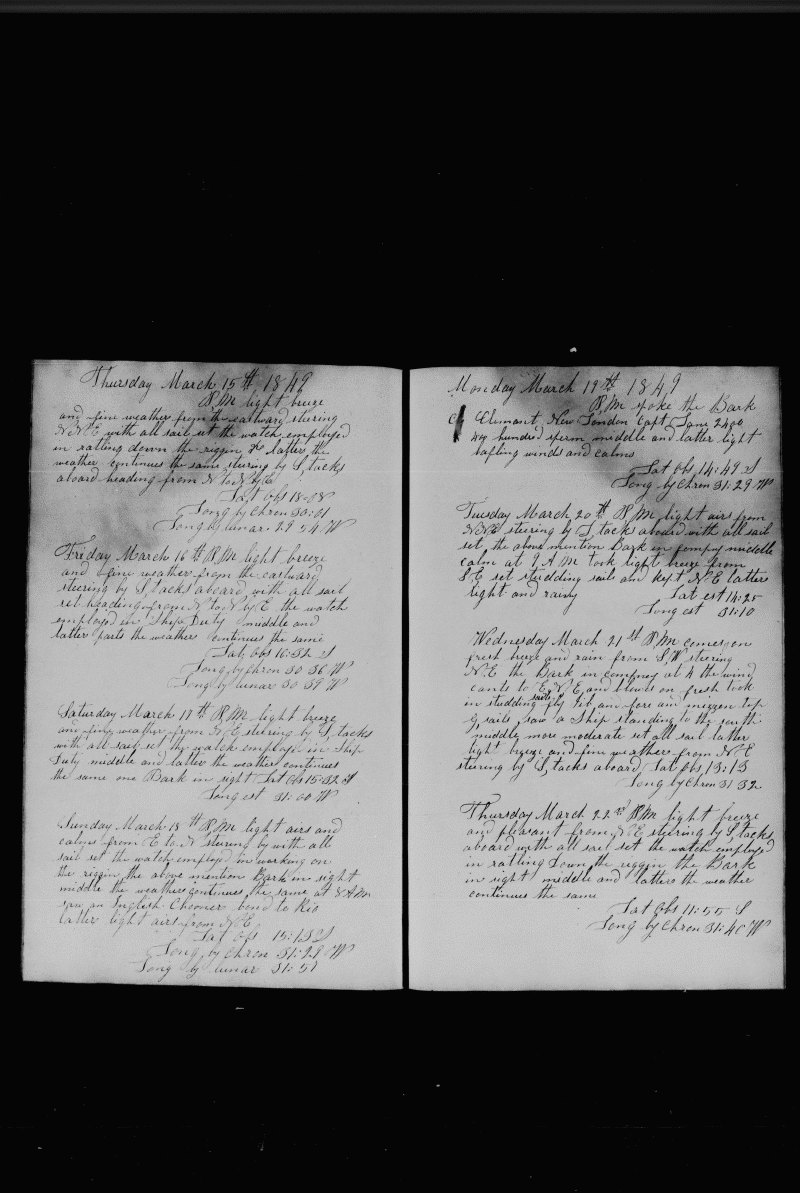 Thursday March 15th 1849
P,M light breeze
and fine weather from the eastward stering
N N E with all sail set the watch employed
in ratling down the riggin &c latter the
weather continues the same stering by S, tacks
aboard heading from N to N by E
Lat obs 18-08
Long by Chron 30:01
Long by lunar 29 54 W
Friday March 16th P,M light breeze
and fine weather from the eastward
steering by S tacks aboard with all sail
set heading from N to N by E the watch
employed in Ship Duty middle and
latter parts the weather continues the same
Lat obs 16:52 S
Long by Chron 30 36 W
Long by lunar 30 39 W
Saturday March 17th P,M light breeze
and fine weather from N E steering by S, tacks
with all sail set the watch employd in ship
Duty middle and latter the weather continues
the same one Bark in sight Lat obs 15-32 S
Long est 31:00 W
Sunday March 18th P,M light airs and
calms from E to N stering by with all
sail set the watch employed in working on
the riggin the above mention Bark in sight
middle the weather continues the same at 8 A m
saw an English Chooner bond to Rio
latter light airs from N E
Lat obs 15:13 S
Long by Chron 31:28 W
Long by lunar 31:51
Monday March 19th 1849
P,M spoke the Bark
Clemant New London Capt Lane 2400
hundred sperm middle and latter light
bafling winds and calms
Lat obs 14:49 S
Long by Chron 31:29 W
Tuesday March 20th P,M light airs from
N N E steering by S, tacks aboard with all sail
set, the above mention Bark in compny middle
calm at 9 A M took light breeze from
S E set studding sails and kept N E latter
light and rainy Lat est 14:25
Long est 31:10
Wednesday March 21st P,M comences
fresh breeze and rain from S, W steering
N E the Bark in company at 4 the wind
cants to E N E and blows on fresh took
in studding sails fly Jib and fore and mizzen top
g, sails, saw a Ship standing to the south
middle more moderate set all sail latter
light breeze and fine weather from N E
steering by S, tacks aboard Lat obs, 13:13
Long by Chron 31 32
Thursday March 22nd P,M light breeze
and pleasant from N E steering by S, tacks
aboard with all sail set the watch employed
in ratling down the riggin the Bark
in sight middle and lattere the weather
continues the same
Lat obs 11:55 S
Long by Chron 31:40 W